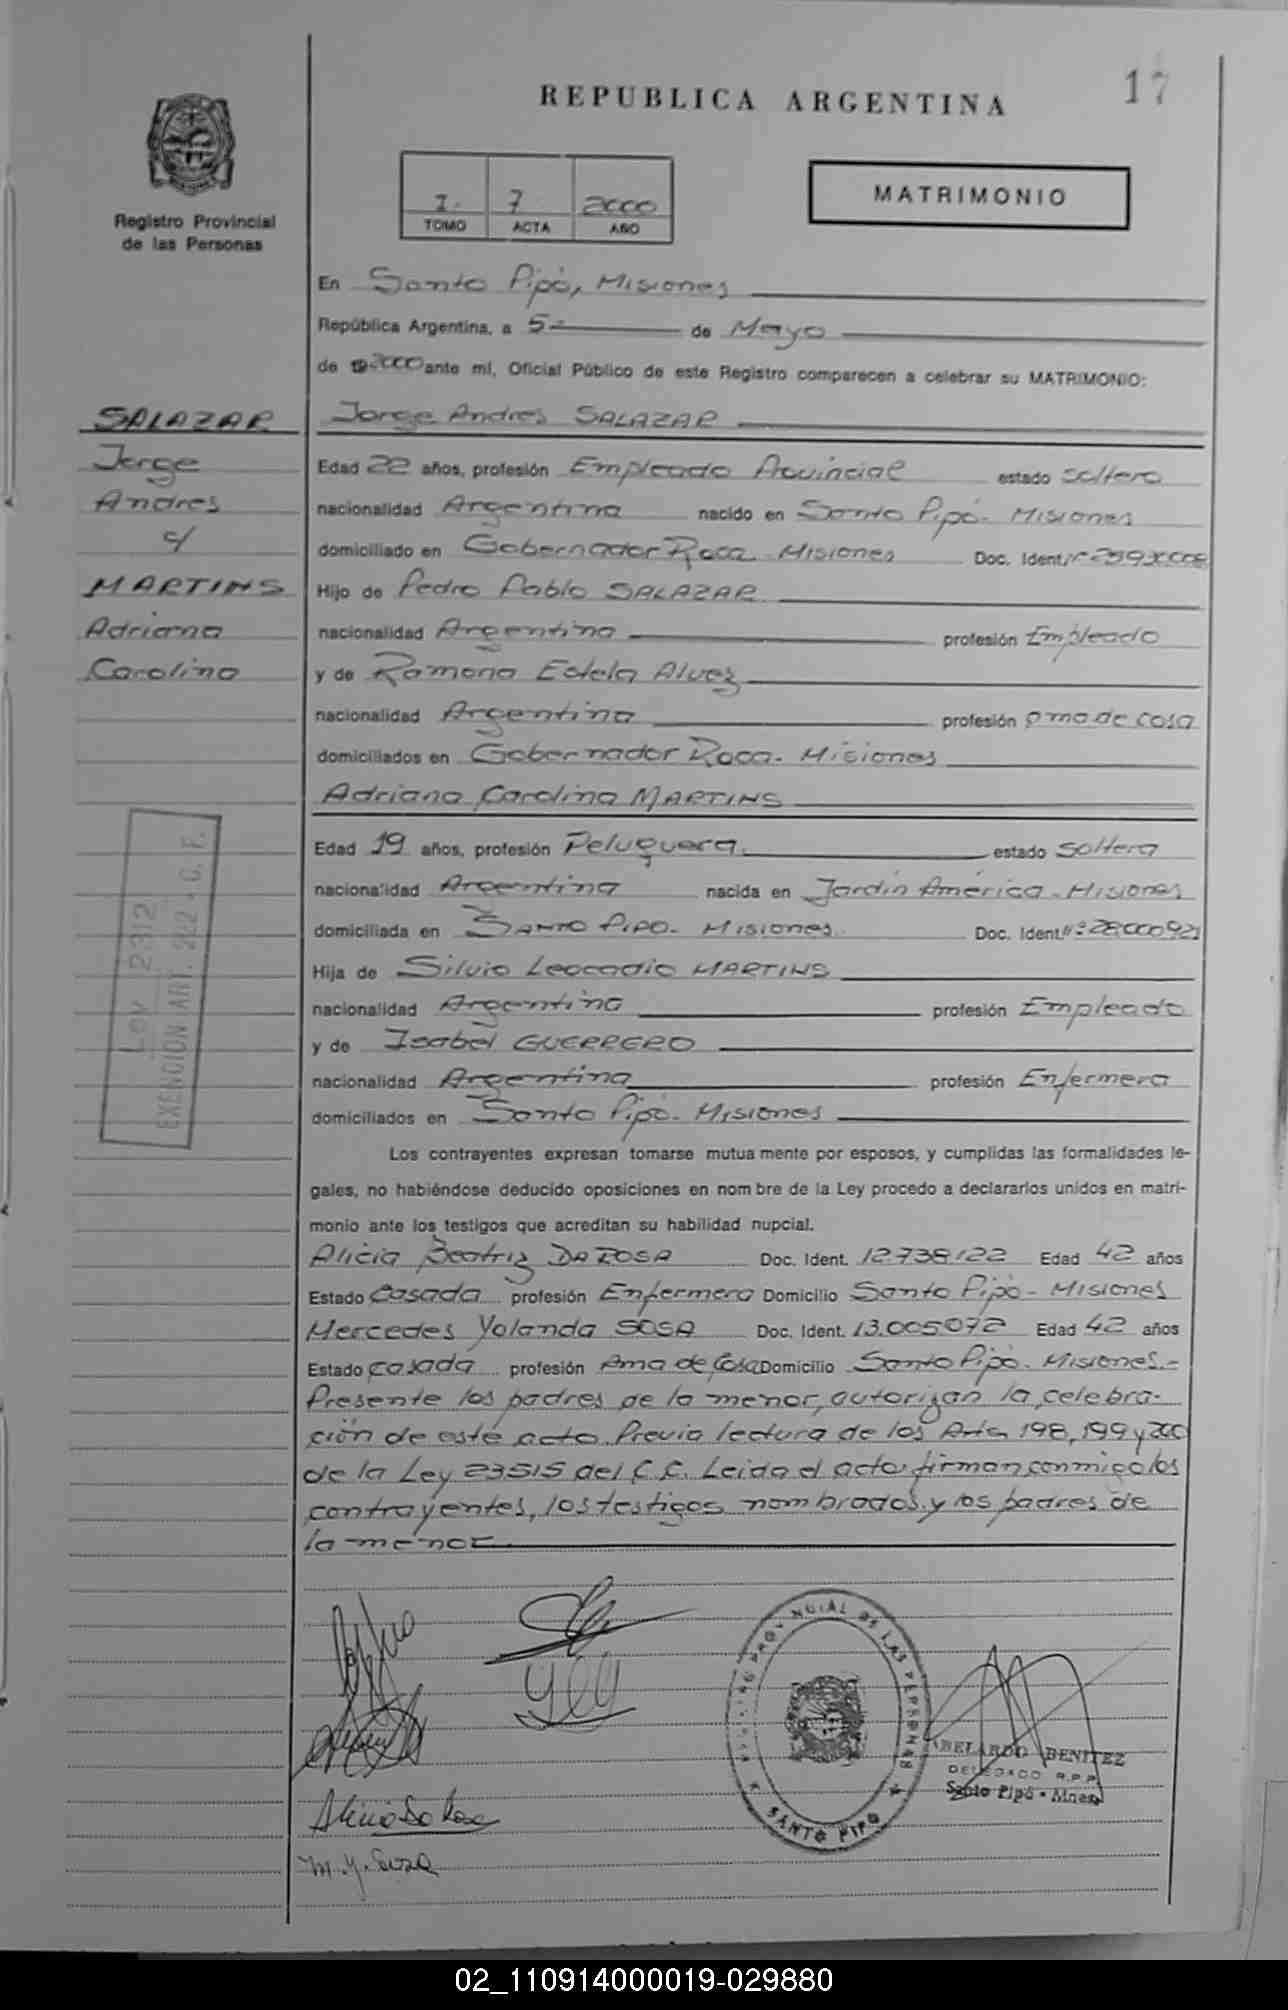 17
REPUBLICA ARGENTINA
Registro Provincial
de las Personas
I. 7 2000
TOMO ACTA AÑO
MATRIMONIO
En Santo Pipó, Misiones
República Argentina, a 5 de Mayo
de 2000 ante mí, Oficial Público de este Registro comparecen a celebrar su MATRIMONIO:
SALAZAR
Jorge
Andres
c/
MARTINS
Adriana
Carolina
Jorge Andres SALAZAR
Edad 22 años, profesión Empleado Provincial estado soltero
nacionalidad Argentina nacido en Santo Pipó- Misiones
domiciliado en Gobernador Roca - Misiones Doc. Ident.
Hijo de Pedro Pablo SALAZAR
nacionalidad Argentina profesión Empleado
y de Ramona Estela Alvez
nacionalidad Argentina profesión ama de casa
domiciliados en Gobernador Roca- Misiones
Adriana Carolina MARTINS
Edad 19 años, profesión Peluquera estado soltera
nacionalidad Argentina nacida en Jardín América - Misiones
domiciliada en SANTO PIPO- Misiones Doc. Ident. Nº: 28.000.921
Hija de Silvio Leocadio MARTINS
nacionalidad Argentina profesión Empleado
y de Isabel GUERRERO
nacionalidad Argentina profesión Enfermera
domiciliados en Santo Pipó- Misiones
LEY 2312
EXENCION ART. 222 - C. F.
Los contrayentes expresan tomarse mutua mente por esposos, y cumplidas las formalidades le-
gales, no habiéndose deducido oposiciones en nom bre de la Ley procedo a declararlos unidos en matri-
monio ante los testigos que acreditan su habilidad nupcial.
Alicia Beatriz DA ROSA Doc. Ident. 12.738.122 Edad 42 años
Estado Casada profesión Enfermera Domicilio Santo Pipó - Misiones
Mercedes Yolanda SOSA Doc. Ident. 13.005.072 Edad 42 años
Estado casada profesión Ama de Casa Domicilio Santo Pipó - Misiones.-
Presente los padres de la menor, autorizan la celebra-
ción de este acto. Previa lectura de los Arts 198, 199 y 200
de la Ley 23515 del C.C. Leida el acta firman conmigo los
contrayentes, los testigos nombrados y los padres de
la menor
Alicia Da Rosa
M. Y. Sosa
PROVINCIAL DE LAS PERSONAS
SANTO PIPO
ABELARDO BENITEZ
DELEGADO R.P.P.
Santo Pipó - Mnes
02_110914000019-029880